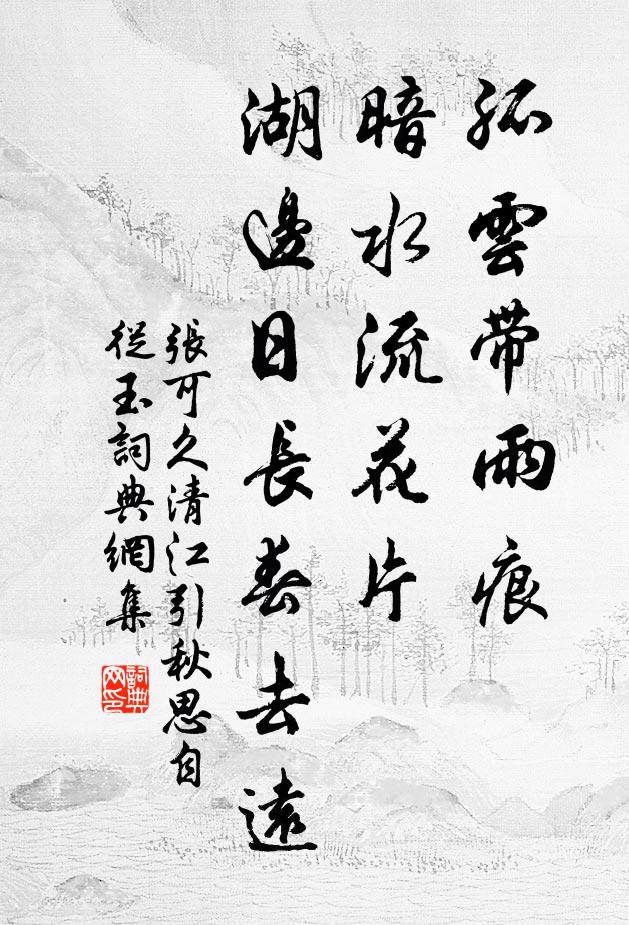 孤雲帶雨痕
暗水流花片
湖邊日長春去遠
張可久清江引秋思自
從玉詞典網集
詞典網印